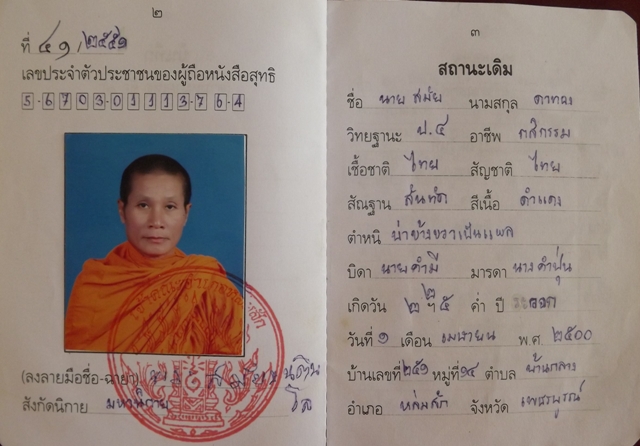 ๒
ที่ ๔๑/๒๕๕๑
เลขประจำตัวประชาชนของผู้ถือหนังสือสุทธิ
5-6703-01113-76-4
(ลงลายมือชื่อ-ฉายา)
สังกัดนิกาย มหานิกาย
๓
สถานะเดิม
ชื่อ นาย สมัย นามสกุล ดาทอง
วิทยฐานะ ป.๔ อาชีพ กสิกรรม
เชื้อชาติ ไทย สัญชาติ ไทย
สัณฐาน สันทัด สีเนื้อ ดำแดง
ตำหนิ ข้างขวาเป็นแผล
บิดา นายคำมี มารดา นางคำฝุ่น
เกิดวัน ค่ำ ปี
วันที่ ๑ เดือน เมษายน พ.ศ. ๒๕๐๐
บ้านเลขที่ ๒๕๑ หมู่ที่ ๑๔ ตำบล บ้านกลาง
อำเภอ หล่มสัก จังหวัด เพชรบูรณ์